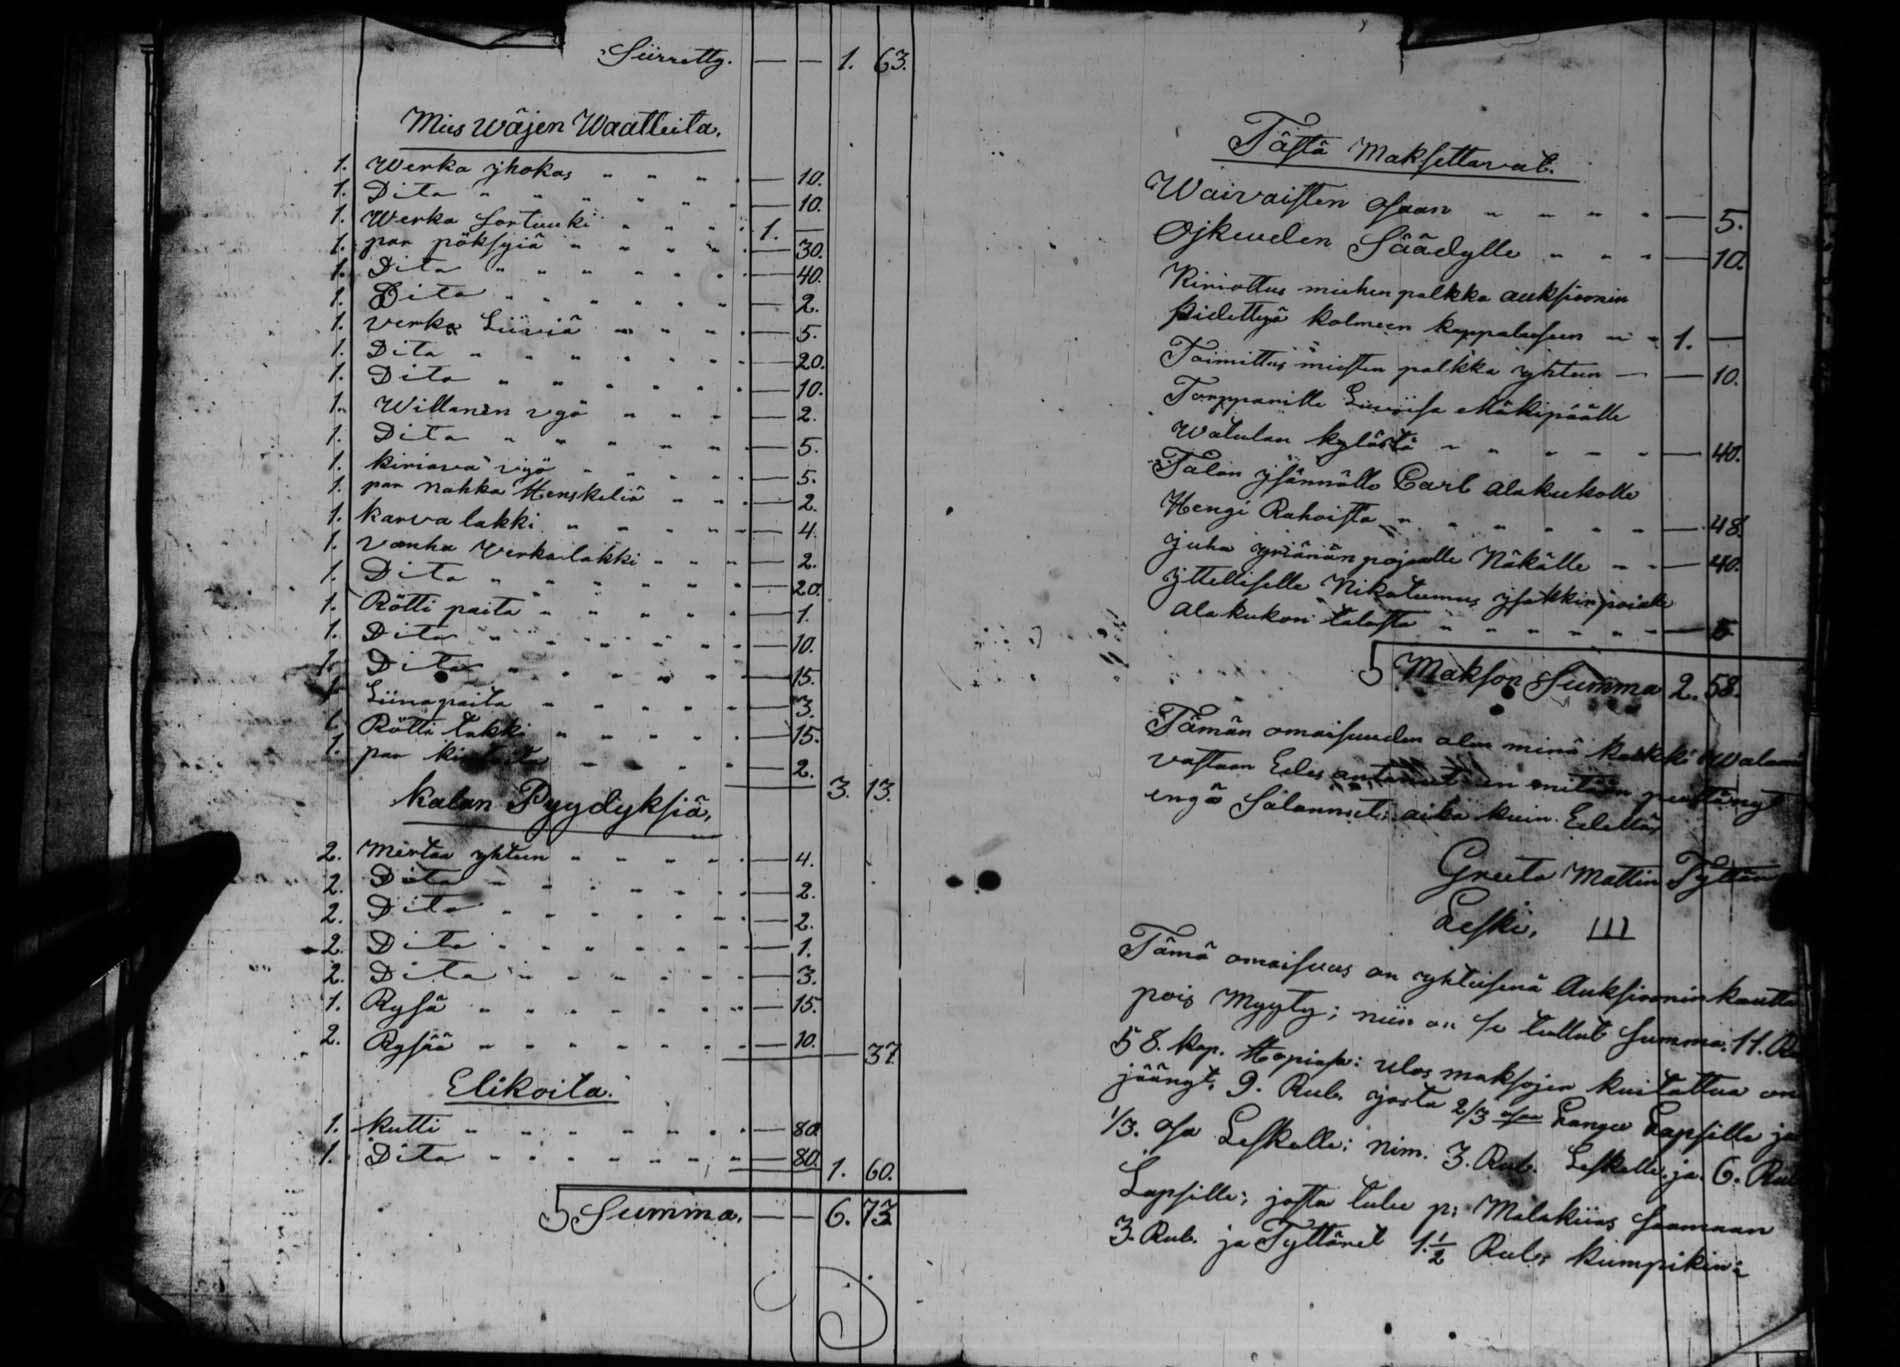 Siirretty. — — 1. 63.
Mies wäjen Waatteita.
1. Werka yhokas " " " " — 10.
1. Dito " " " " " — 10.
1. Werka Sortuuki " " " " 1. —
1. par pöksyiä " " " " " — 30.
1. Dito " " " " " " — 40.
1. Dito " " " " " " — 2.
1. verka Liiviä " " " " — 5.
1. Dito " " " " " " — 20.
1. Dito " " " " " " — 10.
1. Willanen vyö " " " — 2.
1. Dito " " " " " — 5.
1. kiriava vyö " " " " — 5.
1. par Nahka Henskeliä " " — 2.
1. karva lakki " " " " " — 4.
1. vanha Verka lakki " " " — 2.
1. Dito " " " " " " — 20.
1. Rötti paita " " " " " — 1.
1. Dito " " " " " " — 10.
1. Dito " " " " " — 15.
1. Liinapaita " " " " " — 3.
1. Rötti takki " " " " — 15.
1. par " " " — 2.
3. 13.
kalan Pyydyksiä,
2. Mertaa yhteen " " " " " — 4.
2. Dito " " " " " " — 2.
2. Dito " " " " " " — 2.
2. Dito " " " " " " — 1.
2. Dito " " " " " " — 3.
1. Rysä " " " " " " — 15.
2. Rysiä " " " " " " — 10.
— 37.
Elikoita.
1. kutti " " " " " " — 80.
1. Dito " " " " " " — 80.
1. 60.
Summa. — — 6. 73.
Tästä Maksettavat.
Waivaisten osaan " " " " — 5.
Ojkeuden Säädylle " " " — 10.
Kiriottus miehen palkka auksioonin
pidettyä kolmeen kappaleeseen " " 1. —
Toimittus miesten palkka yhteen — — 10.
Torpparille Mäkipäälle
Watulan kylästä " " " " " — 40.
Talon ysännälle Carl Alakukolle
Hengi Rahoista " " " " " — 48.
Juha yriänän pojalle Näkälle " " — 40.
yttelliselle Nikotemus ysakkin poialle
Alakukon talosta " " " " " " — 5.
Makson Summa 2. 58.
Tämän omaisuuden olen minä kaikki
vastaan Edes antanut en mitään
engä Salannut; aika kuin Edellä
Greeta Mattin Tyttär
Leski, III
Tämä omaisuus on yhteisenä Auksioonin kautta
pois Myyty; niin on se tullut Summa. 11.
58. kop. Hopiasa: ulos maksojen kuitattua on
jäänyt. 9. Rub. josta 2/3 osaa Lange Lapsille ja
1/3. osa Leskelle; nim. 3. Rub. Leskelle ja 6. Rub
Lapsille; josta tulee p: Malakiias Saamaan
3. Rub. ja Tyttäret 1. 1/2 Rub. kumpikin